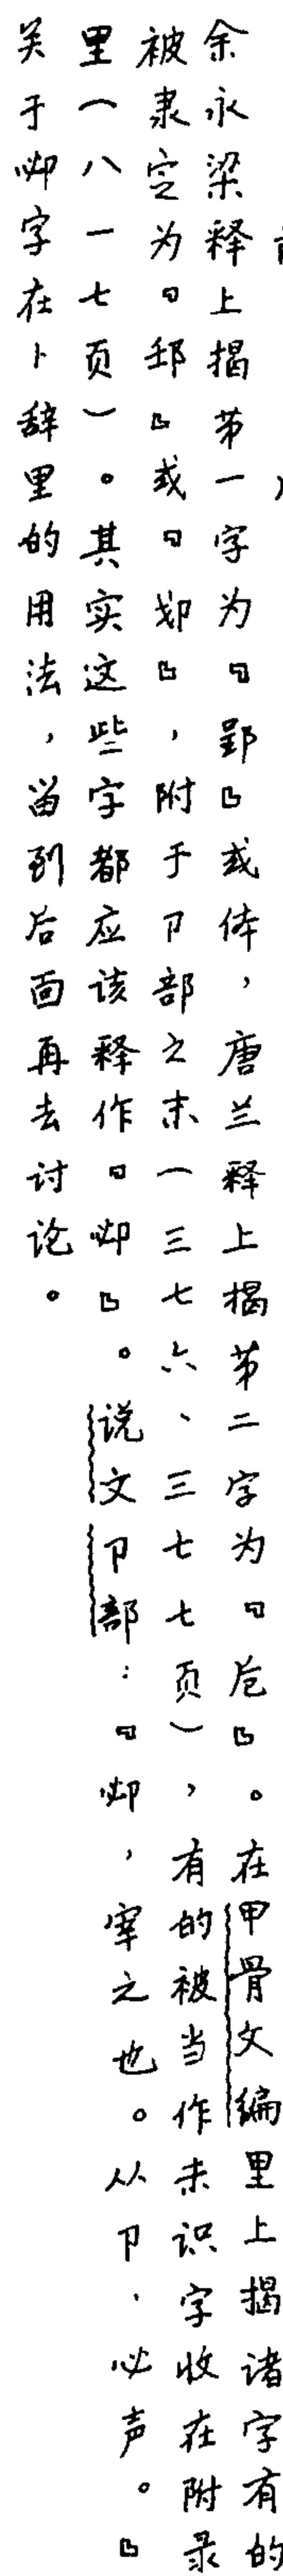 余永梁释上揭第一字为『郢』或体，唐兰释上揭第二字为『卮』。在甲骨文编里上揭诸字有的
被隶定为『邳』或『𨚔』，附于卩部之末（三七六、三七七页），有的被当作未识字收在附录
里（八一七页）。其实这些字都应该释作『㘡』。说文卩部：『㘡，宰之也。从卩、必声。』
关于㘡字在卜辞里的用法，留到后面再去讨论。